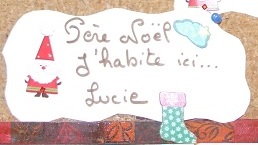 Père Noël
J'habite ici...
Lucie